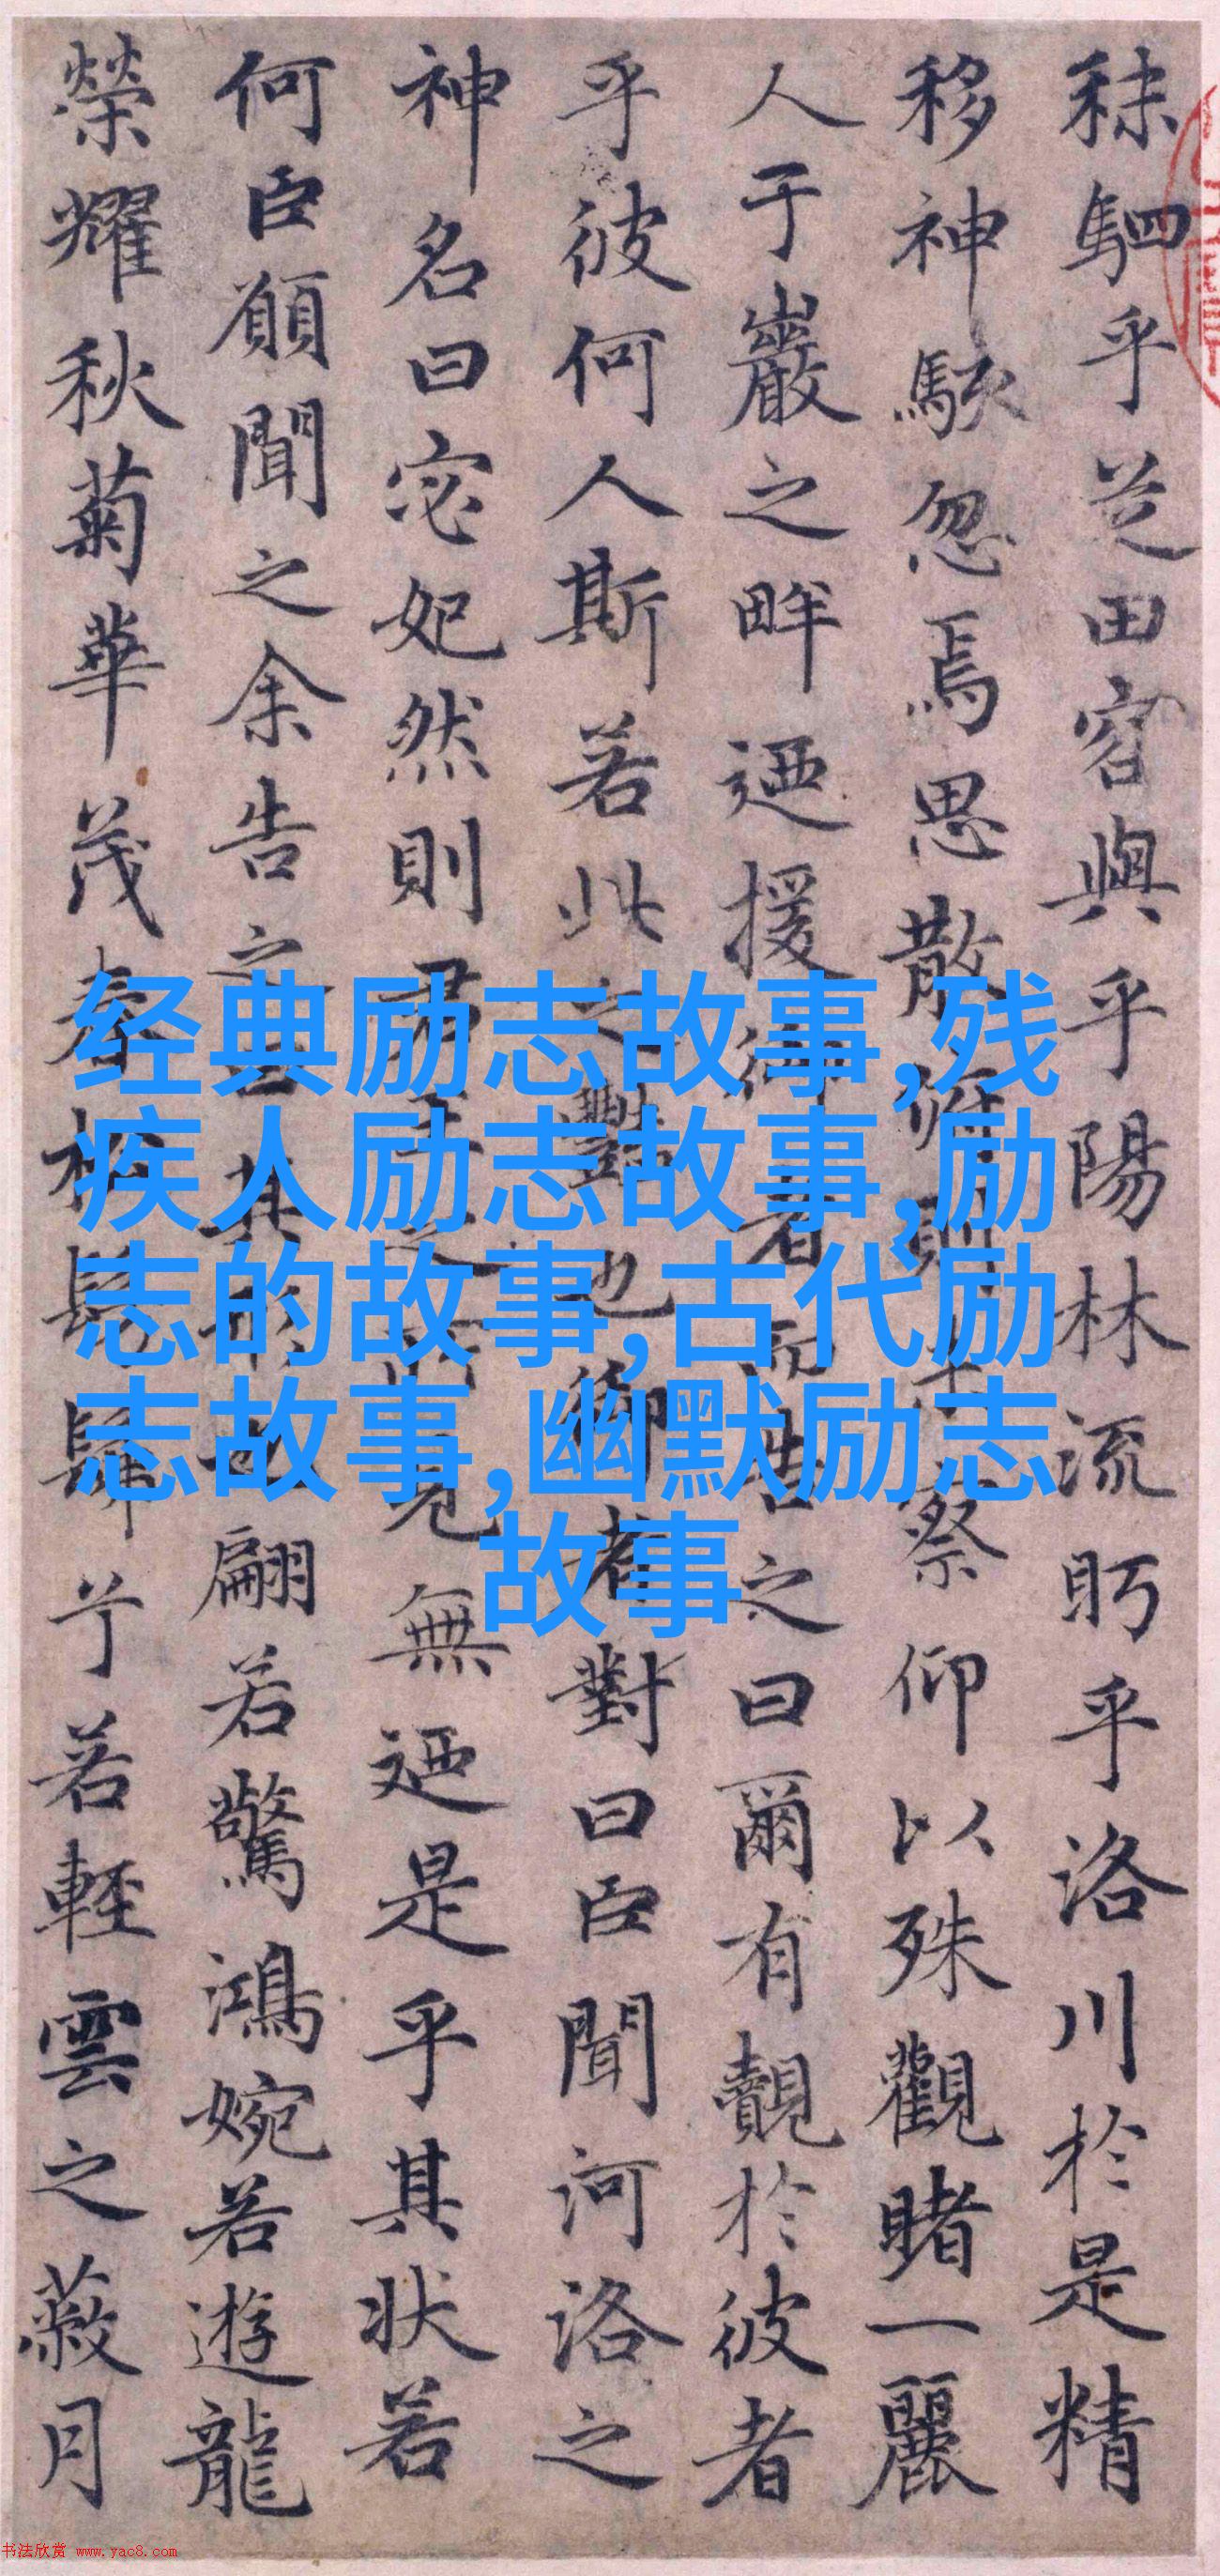 秣駟乎芝田容與乎陽林流眄乎洛川於是精
移神駭忽焉思散俯則未察仰以殊觀睹一麗
人于巖之畔迺援御者而告之曰爾有覿於彼者
乎彼何人斯若此之豔也御者對曰臣聞河洛之
神名曰宓妃然則君王之所見無迺是乎其狀若
何臣願聞之余告之曰其形也翩若驚鴻婉若遊龍
榮耀秋菊華茂春松髣髴兮若輕雲之蔽月
经典励志故事,残
疾人励志故事,励
志的故事,古代励
志故事,幽默励志
故事
书法欣赏 www.yac8.com